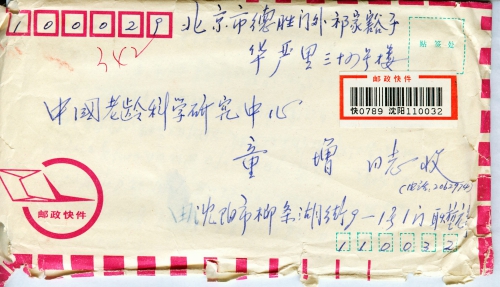 100029
北京市德胜门外祁家豁子
华严里三十四号楼
342
贴签处
邮政快件
快0789 沈阳110032
中国老龄科学研究中心
童增 同志收
(电话:2012974)
邮政快件
沈阳市柳条湖街9-1号1门
110032